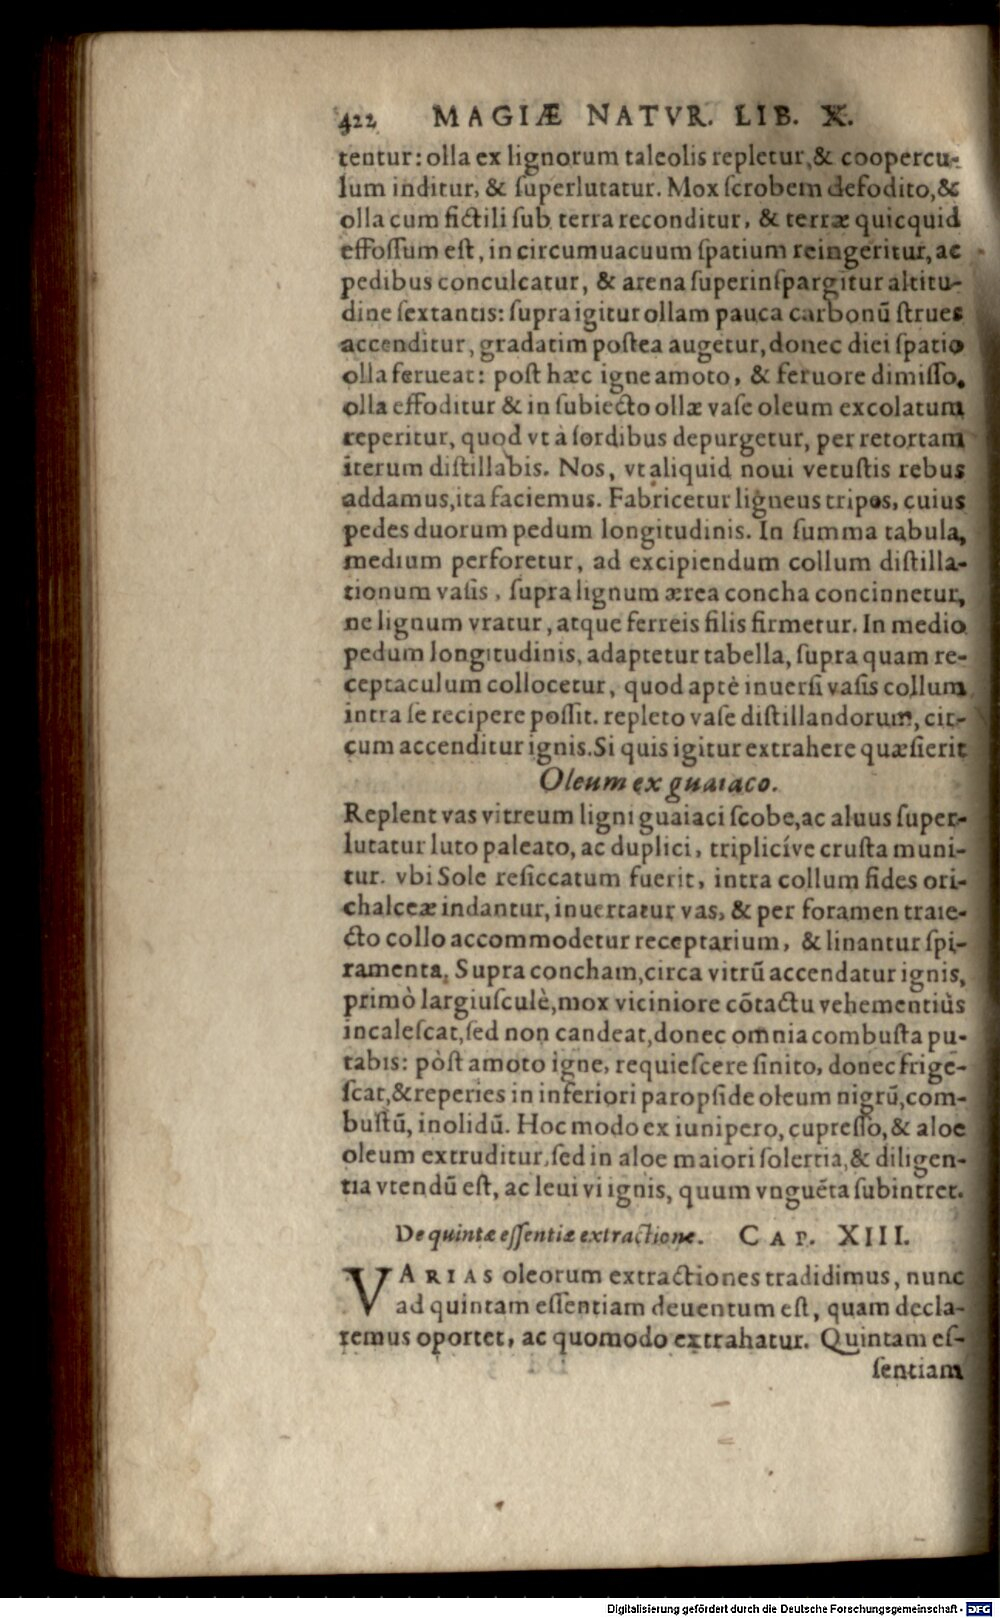 422 MAGIÆ NATVR. LIB. X.
tentur: olla ex lignorum taleolis repletur, & coopercu-
lum inditur, & ſuperlutatur. Mox ſcrobem defodito, &
olla cum fictili ſub terra reconditur, & terræ quicquid
effoſſum eſt, in circumuacuum ſpatium reingeritur, ac
pedibus conculcatur, & arena ſuperinſpargitur altitu-
dine ſextantis: ſupra igitur ollam pauca carbonū ſtrues
accenditur, gradatim poſtea augetur, donec diei ſpatio
olla ferueat: poſt hæc igne amoto, & feruore dimiſſo,
olla effoditur & in ſubiecto ollæ vaſe oleum excolatum
reperitur, quod vt à ſordibus depurgetur, per retortam
iterum diſtillabis. Nos, vt aliquid noui vetuſtis rebus
addamus, ita faciemus. Fabricetur ligneus tripos, cuius
pedes duorum pedum longitudinis. In ſumma tabula,
medium perforetur, ad excipiendum collum diſtilla-
tionum vaſis, ſupra lignum ærea concha concinnetur,
ne lignum vratur, atque ferreis filis firmetur. In medio
pedum longitudinis, adaptetur tabella, ſupra quam re-
ceptaculum collocetur, quod aptè inuerſi vaſis collum
intra ſe recipere poſſit. repleto vaſe diſtillandorum, cir-
cum accenditur ignis. Si quis igitur extrahere quæſierit
Oleum ex guaiaco.
Replent vas vitreum ligni guaiaci ſcobe, ac aluus ſuper-
lutatur luto paleato, ac duplici, triplicíve cruſta muni-
tur. vbi Sole reſiccatum fuerit, intra collum fides ori-
chalceæ indantur, inuertatur vas, & per foramen traie-
cto collo accommodetur receptarium, & linantur ſpi-
ramenta. Supra concham, circa vitrū accendatur ignis,
primò largiuſculè, mox viciniore cōtactu vehementiùs
incaleſcat, ſed non candeat, donec omnia combuſta pu-
tabis: pòſt amoto igne, requieſcere ſinito, donec frige-
ſcat, & reperies in inferiori paropſide oleum nigrū, com-
buſtū, inolidū. Hoc modo ex iunipero, cupreſſo, & aloe
oleum extruditur, ſed in aloe maiori ſolertia, & diligen-
tia vtendū eſt, ac leui vi ignis, quum vnguēta ſubintret.
De quintæ eſſentiæ extractione. CAP. XIII.
VARIAS oleorum extractiones tradidimus, nunc
ad quintam eſſentiam deuentum eſt, quam decla-
remus oportet, ac quomodo extrahatur. Quintam eſ-
ſentiam
Digitalisierung gefördert durch die Deutsche Forschungsgemeinschaft - DFG